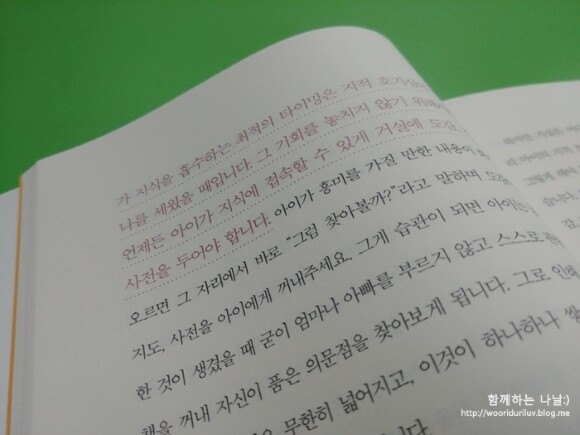 가 지식을 흡수하는 최적의 타이밍은 지적 호기심이
나를 세웠을 때입니다. 그 기회를 놓치지 않기 위해서
언제든 아이가 지식에 접속할 수 있게 거실에 도감
사전을 두어야 합니다. 아이가 흥미를 가질 만한 내용이
오르면 그 자리에서 바로 "그럼 찾아볼까?"라고 말하며
지도, 사전을 아이에게 꺼내주세요. 그게 습관이 되면 아이는
한 것이 생겼을 때 굳이 엄마나 아빠를 부르지 않고 스스로
책을 꺼내 자신이 품은 의문점을 찾아보게 됩니다. 그로 인해
무한히 넓어지고, 이것이 하나하나
함께하는 나날:)
http://wooriduriluv.blog.me